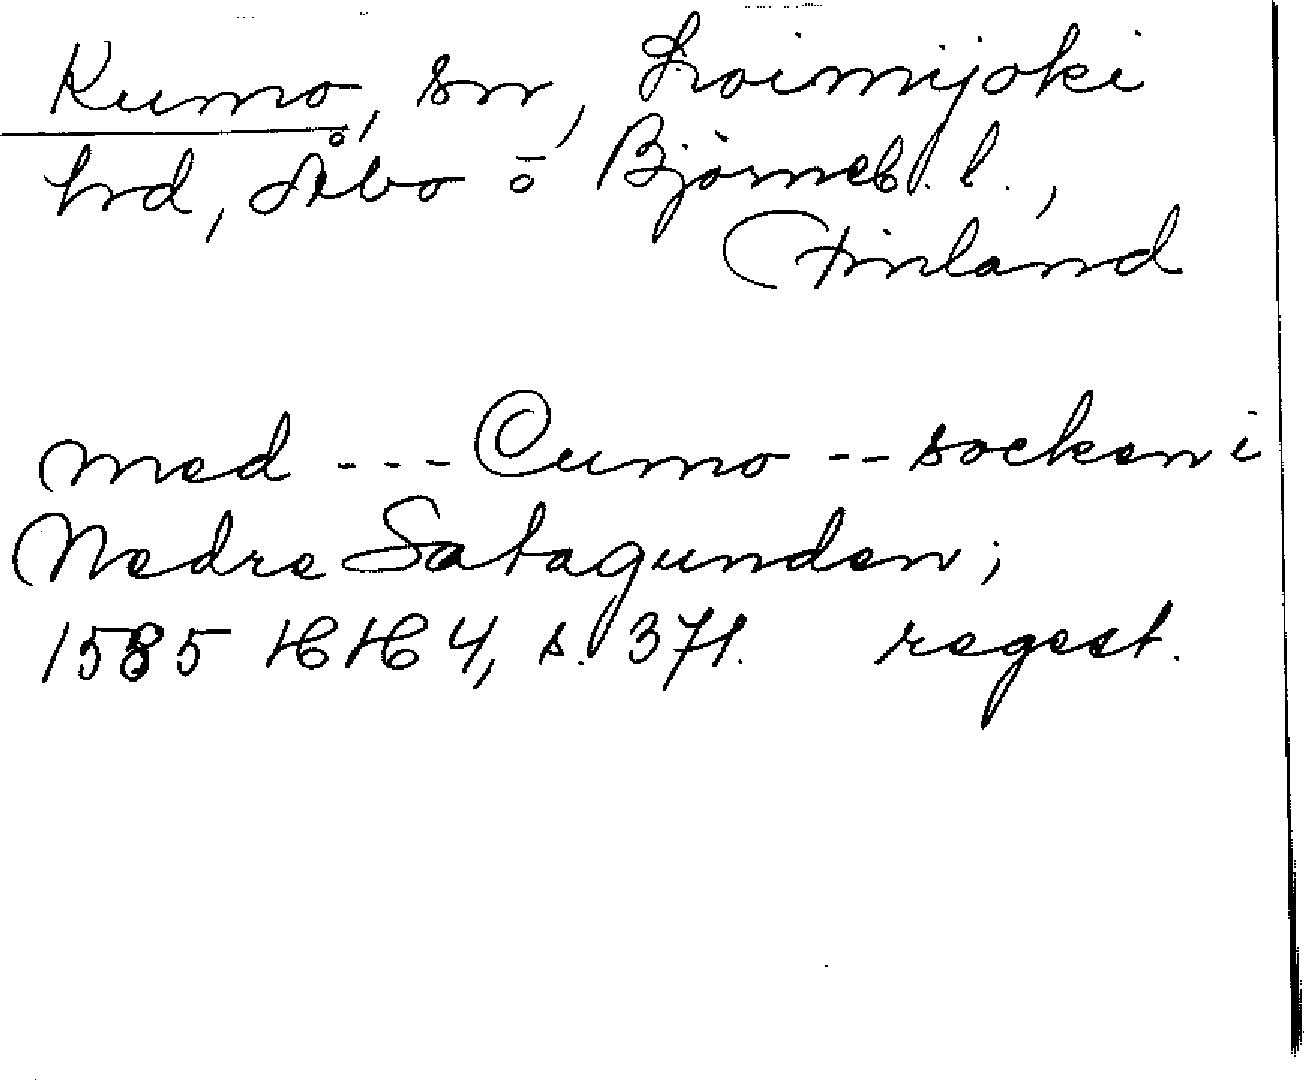 Kumo, sn, Loimijoki
hd, Åbo o Björneb. l.,
Finland
med --- Cumo -- socken i
Nedre Satagunden;
1585 HH 4, s. 371. regest.